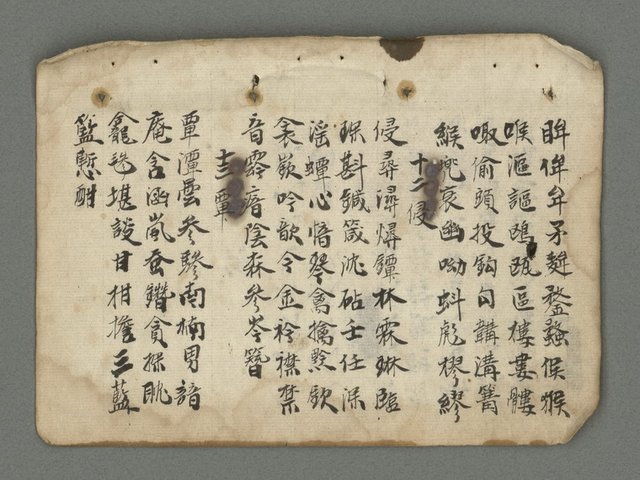 眸侔牟矛鍪蟊侯猴
喉漚謳鴎甌區樓婁髏
呶偷頭投鈎勾韝溝篝
緱兜裒幽呦蚪彪樛繆
十二侵
侵尋潯燖鐔林霖琳臨
琛斟鍼箴沈砧壬任深
淫蟫心愔琴禽擒欽歆
衾嶔吟歆今金衿襟禁
音霒瘖陰森參岑簪
十三覃
覃潭曇參驂南楠男諳
庵含涵嵐蚕鐕貪探耽
龕毵堪談甘柑擔三藍
籃慙酣